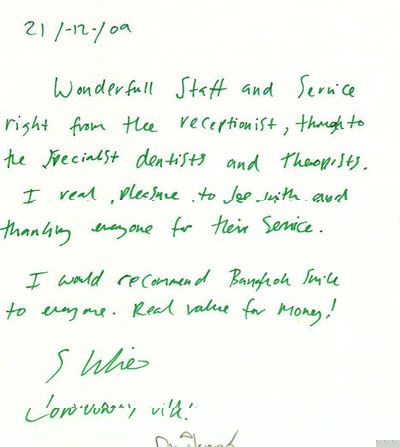 21/-12-/09
Wonderfull Staff and Service
right from the receptionist, through to
the specialist dentists and theropists.
I real, pleasure to with and
thanking everyone for their Service.
I would recommend Bangkok Smile
to everyone. Real value for money!